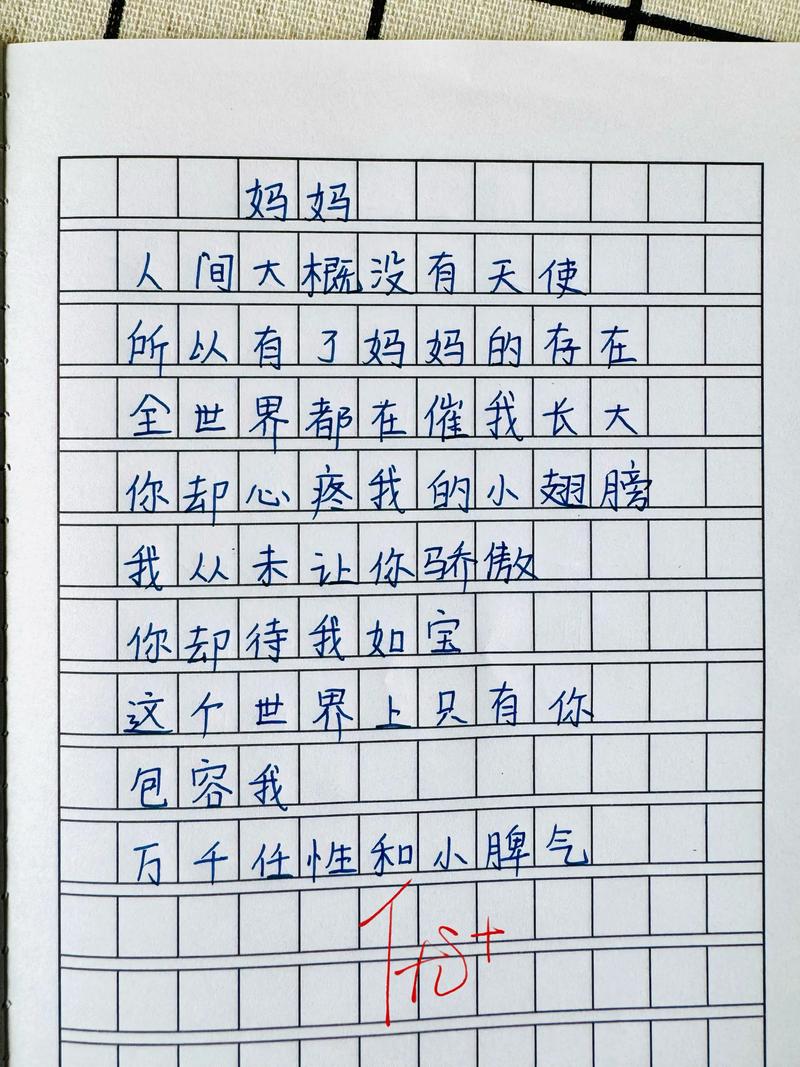 妈妈
人间大概没有天使
所以有了妈妈的存在
全世界都在催我长大
你却心疼我的小翅膀
我从未让你骄傲
你却待我如宝
这个世界上只有你
包容我
万千任性和小脾气
优+